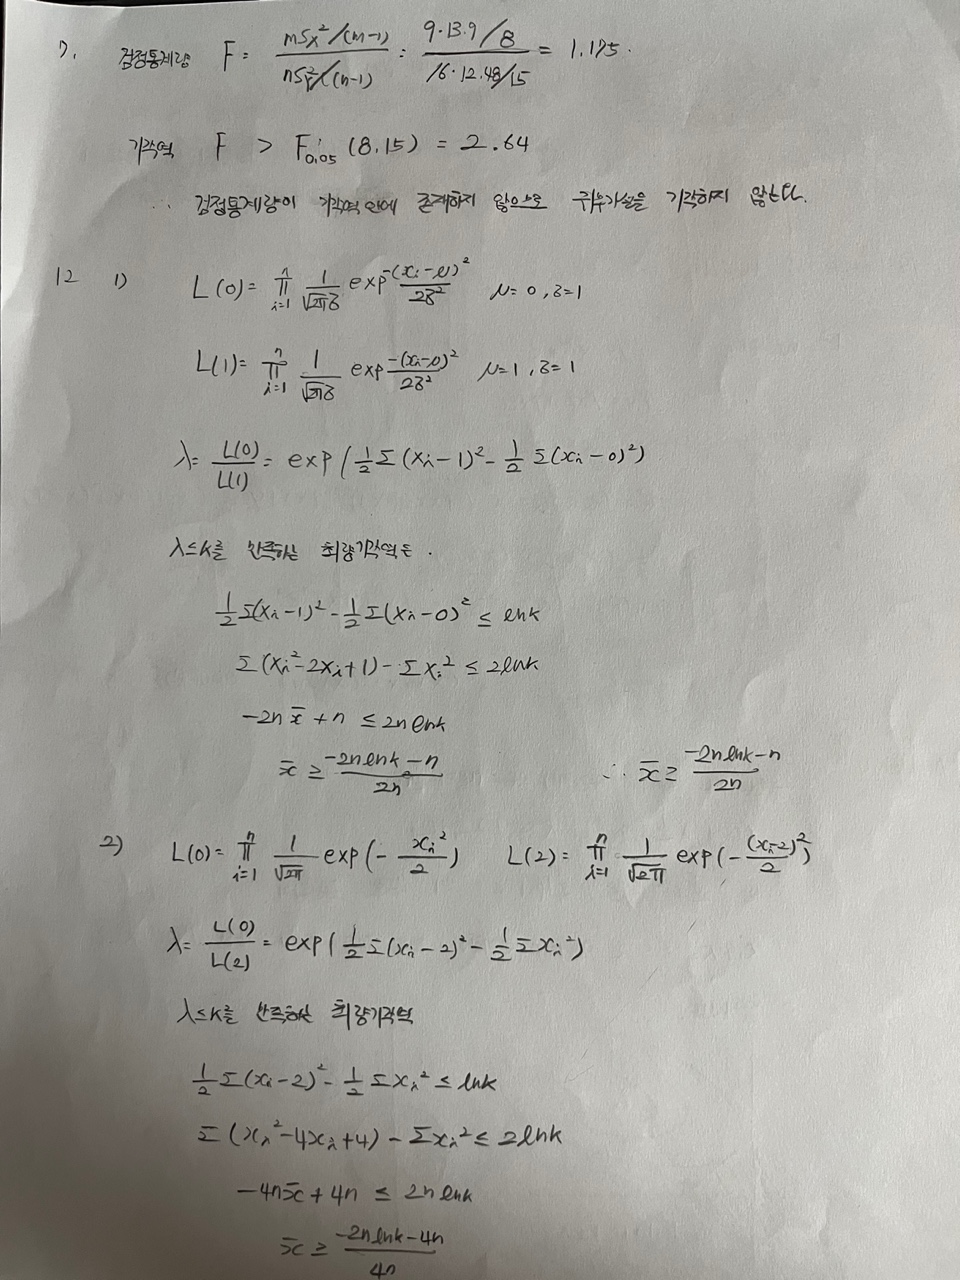 7. 검정통계량 F = mSx²/(m-1) / nSY²/(n-1) = 9·13.9/8 / 16·12.48/15 = 1.175.
기각역 F > F0.05 (8.15) = 2.64
∴ 검정통계량이 기각역 안에 존재하지 않으므로 귀무가설을 기각하지 않는다.
12 1) L(0) = ∏(i=1→n) 1/√2πσ exp -(xi-μ)²/2σ² μ=0, σ=1
L(1) = ∏(i=1→n) 1/√2πσ exp -(xi-μ)²/2σ² μ=1, σ=1
λ = L(0)/L(1) = exp(1/2 Σ(xi-1)² - 1/2 Σ(xi-0)²)
λ≤K를 만족하는 최량기각역은.
1/2 Σ(xi-1)² - 1/2 Σ(xi-0)² ≤ lnk
Σ(xi²-2xi+1) - Σxi² ≤ 2lnk
-2n x̄ + n ≤ 2n lnk
x̄ ≥ -2n lnk - n / 2n ∴ x̄ ≥ -2n lnk - n / 2n
2) L(0) = ∏(i=1→n) 1/√2π exp(- xi²/2) L(2) = ∏(i=1→n) 1/√2π exp(- (xi-2)²/2)
λ = L(0)/L(2) = exp(1/2 Σ(xi-2)² - 1/2 Σxi²)
λ≤K를 만족하는 최량기각역
1/2 Σ(xi-2)² - 1/2 Σxi² ≤ lnk
Σ(xi²-4xi+4) - Σxi² ≤ 2lnk
-4n x̄ + 4n ≤ 2n lnk
x̄ ≥ -2n lnk - 4n / 4n